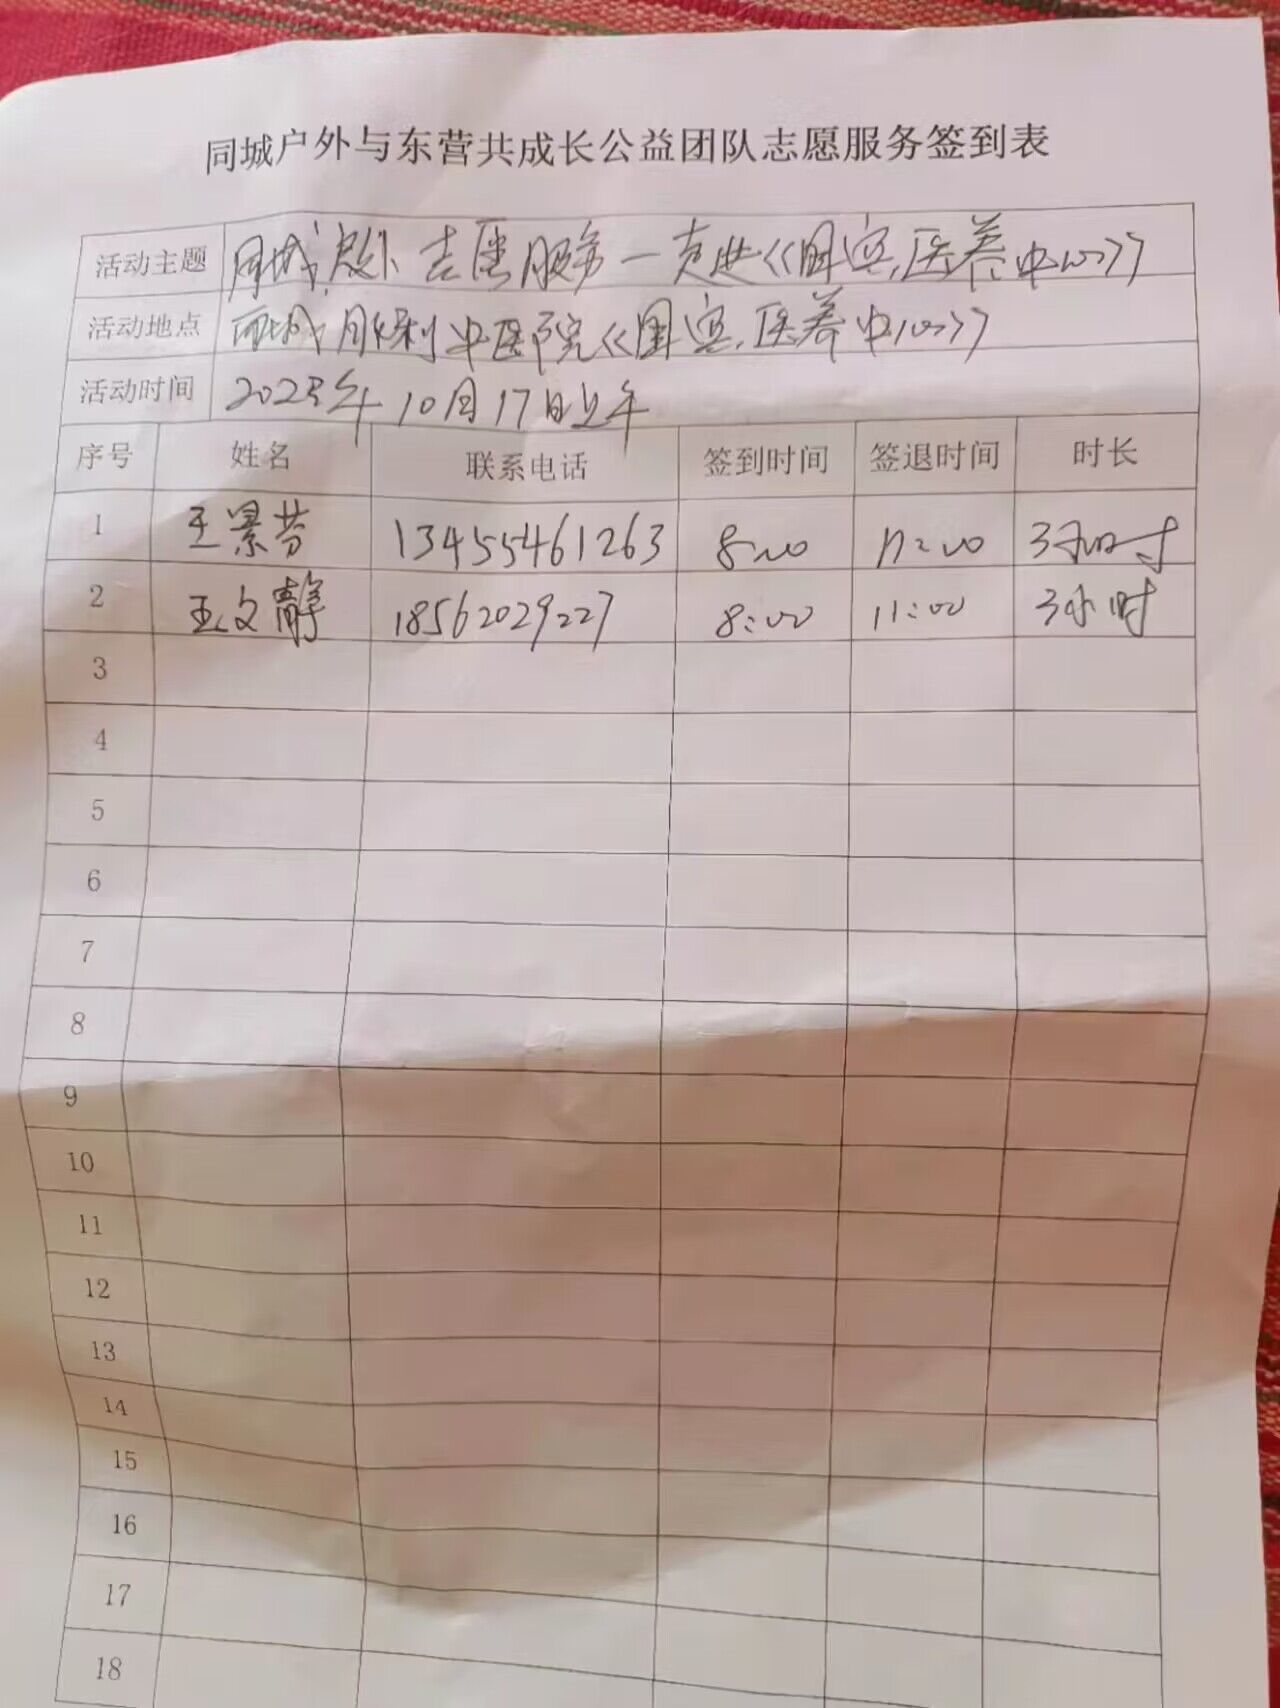 同城户外与东营共成长公益团队志愿服务签到表
活动主题 同城户外志愿服务一走进《国宾医养中心》
活动地点 西城胜利中医院《国宾医养中心》
活动时间 2023年10月17日上午
序号 姓名 联系电话 签到时间 签退时间 时长
1 王景芬 13455461263 8:00 11:00 3小时
2 王文静 18562029227 8:00 11:00 3小时
3
4
5
6
7
8
9
10
11
12
13
14
15
16
17
18